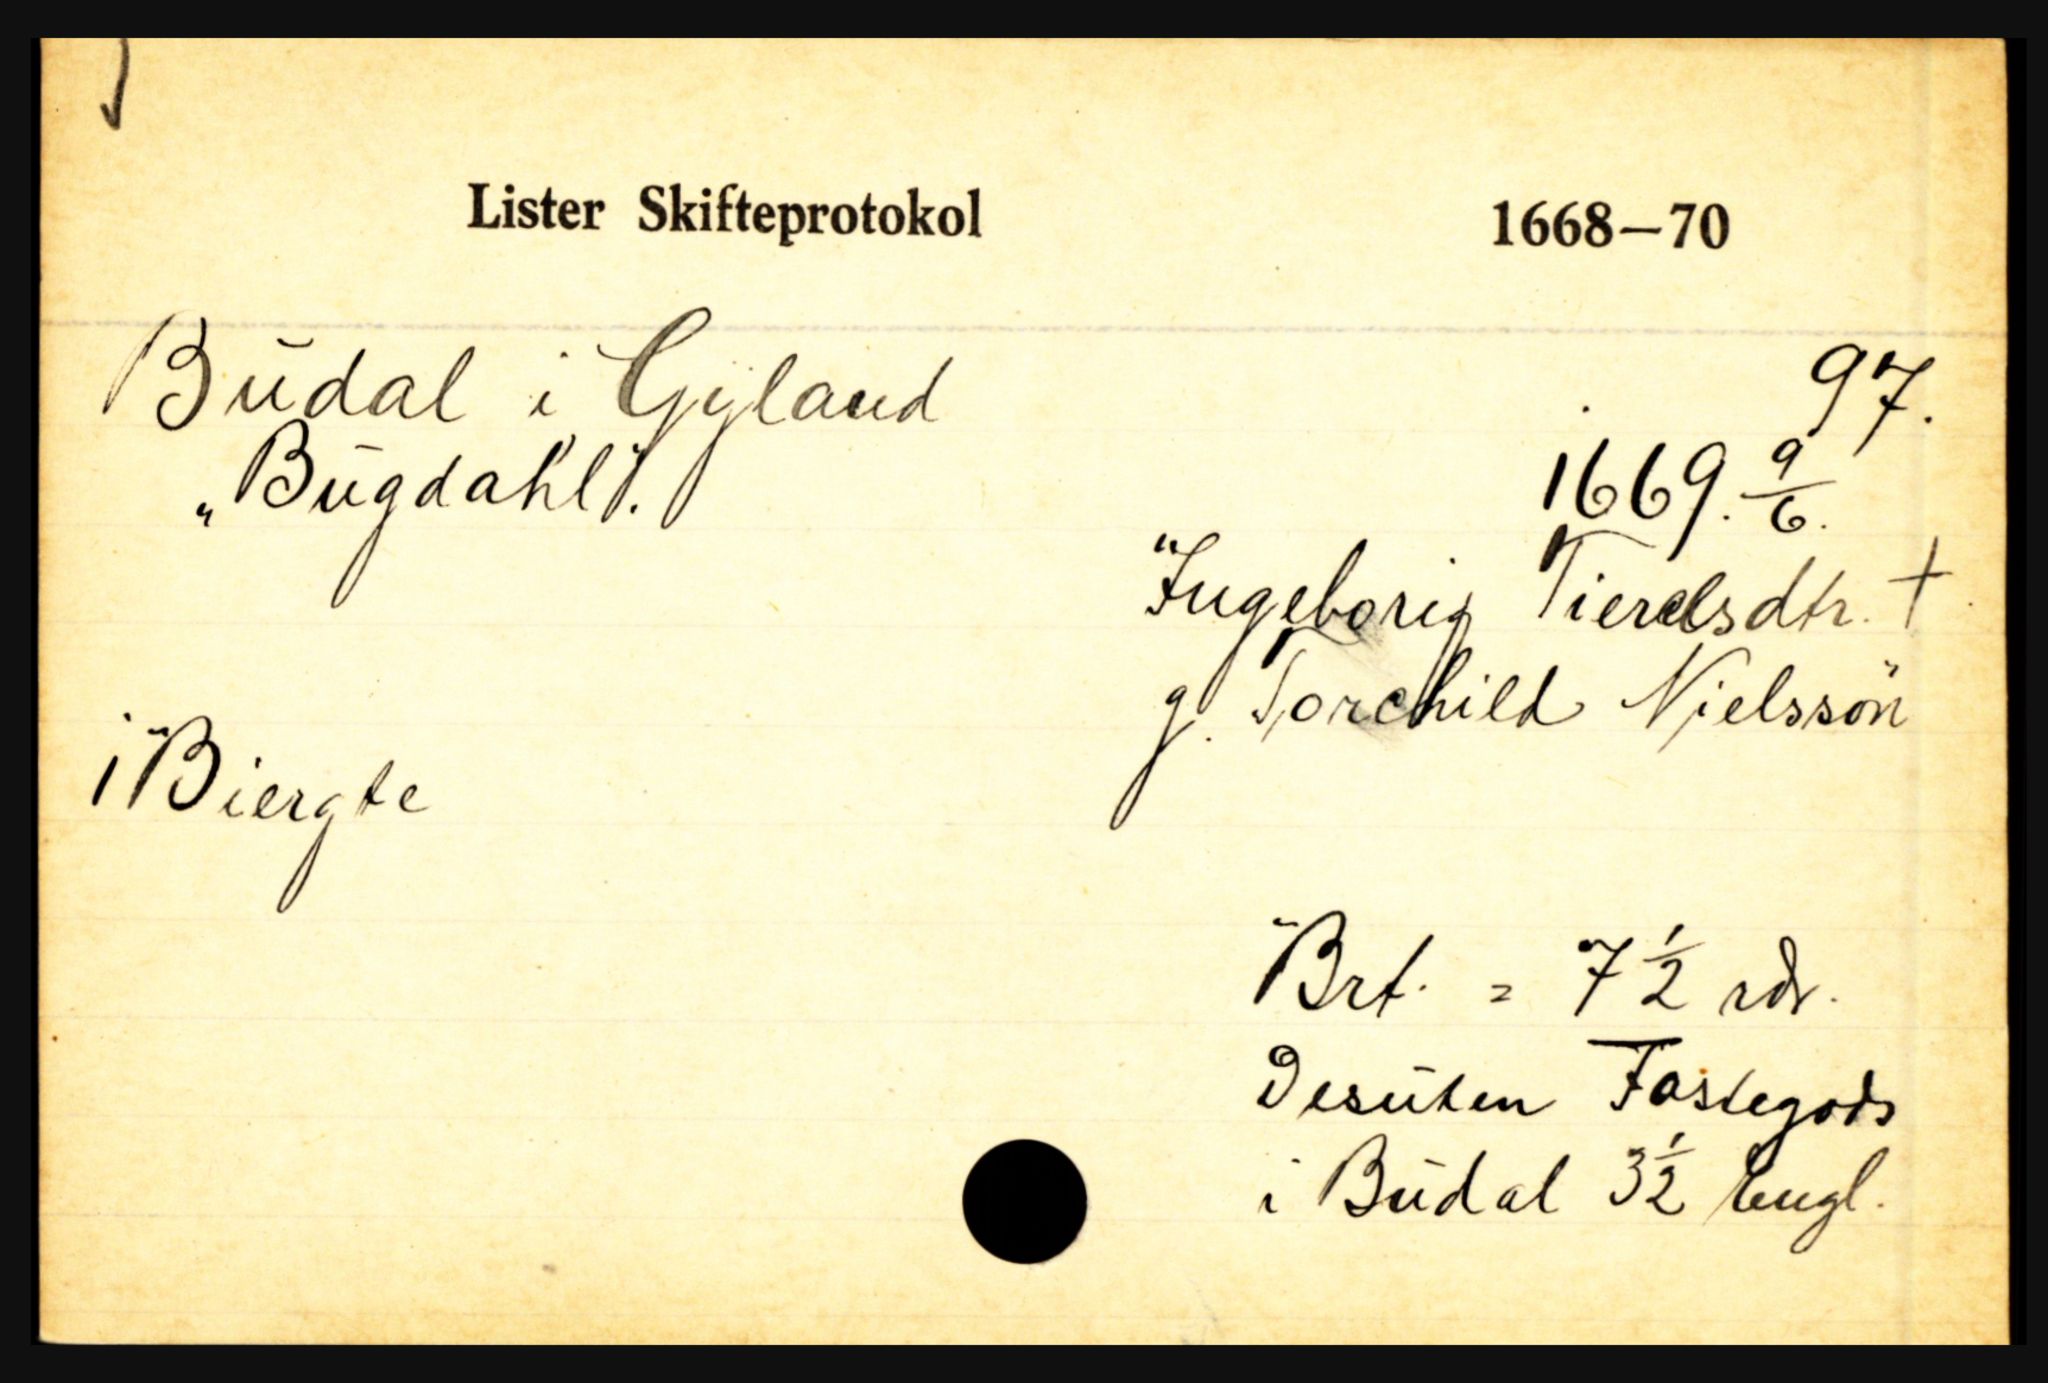 Lister Skifteprotokol 1668–70
Budal i Gyland 97.
„Bugdahl". 1669. 9/6.
Ingeborig Tieralsdtr. +
g. Torchild Nielssön
i Biergte
Brt. = 7 1/2 rdr.
Desuten Fastegods
i Budal 3 1/2 Engl.